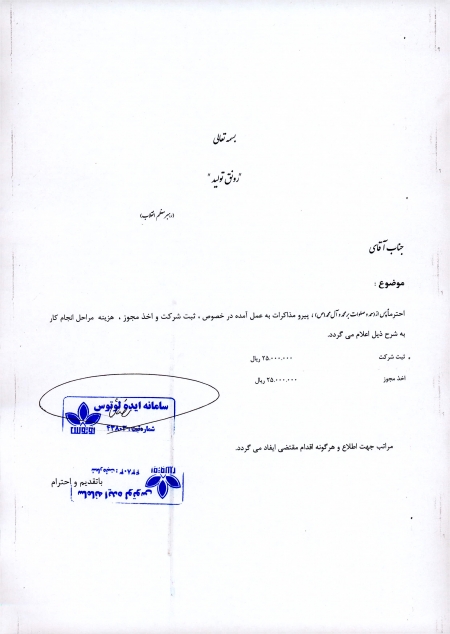 بسمه تعالی
"رونق تولید"
(رهبر معظم انقلاب)
جناب آقای
موضوع :
احتراماً پس از حمد و صلوات بر محمد و آل محمد (ص) ، پیرو مذاکرات به عمل آمده در خصوص ، ثبت شرکت و اخذ مجوز ، هزینه مراحل انجام کار
به شرح ذیل اعلام می گردد.
ثبت شرکت ۲۵.۰۰۰.۰۰۰ ریال
اخذ مجوز ۲۵.۰۰۰.۰۰۰ ریال
سامانه ایده لوتوس
شماره ثبت : ۲۲۸۰۳
مراتب جهت اطلاع و هرگونه اقدام مقتضی ایفاد می گردد.
شماره ثبت : ۲۲۸۰۳
سامانه ایده لوتوس
باتقدیم و احترام